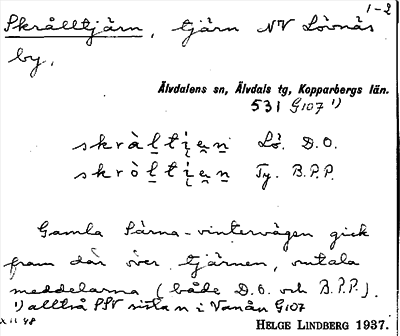 1-2
Skrålltjärn, tjärn NV Lövnäs
by.
Älvdalens sn, Älvdals tg, Kopparbergs län.
531 G107 1)
skràltịẹn Lö. D.O.
skròltịẹn Ty. B.P.P.
Gamla Särna-vintervägen gick
fram där över tjärnen, omtala
meddelarna (både D.O. och B.P.P.).
1) alltså SSV sistan i Vanån G107
XII 48
HELGE LINDBERG 1937.